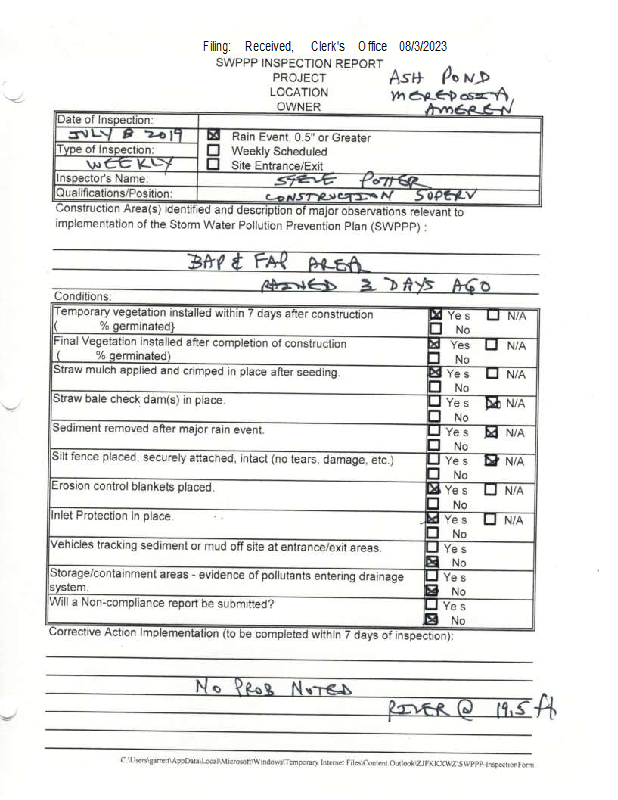 Filing: Received, Clerk's Office 08/3/2023
SWPPP INSPECTION REPORT
PROJECT ASH POND
LOCATION MEREDOSIA,
OWNER AMEREN
Date of Inspection:
JULY 8 2019 ☒ Rain Event, 0.5" or Greater
Type of Inspection: ☐ Weekly Scheduled
WEEKLY ☐ Site Entrance/Exit
Inspector's Name: STEVE POTTER
Qualifications/Position: CONSTRUCTION SUPERV
Construction Area(s) identified and description of major observations relevant to
implementation of the Storm Water Pollution Prevention Plan (SWPPP) :
BAP & FAP AREA
RAINED 3 DAYS AGO
Conditions:
Temporary vegetation installed within 7 days after construction ☒ Yes ☐ N/A
( % germinated) ☐ No
Final Vegetation installed after completion of construction ☒ Yes ☐ N/A
( % germinated) ☐ No
Straw mulch applied and crimped in place after seeding. ☒ Yes ☐ N/A
☐ No
Straw bale check dam(s) in place. ☐ Yes ☒ N/A
☐ No
Sediment removed after major rain event. ☐ Yes ☒ N/A
☐ No
Silt fence placed, securely attached, intact (no tears, damage, etc.) ☐ Yes ☒ N/A
☐ No
Erosion control blankets placed. ☒ Yes ☐ N/A
☐ No
Inlet Protection in place. ☒ Yes ☐ N/A
☐ No
Vehicles tracking sediment or mud off site at entrance/exit areas. ☐ Yes
☒ No
Storage/containment areas - evidence of pollutants entering drainage ☐ Yes
system. ☒ No
Will a Non-compliance report be submitted? ☐ Yes
☒ No
Corrective Action Implementation (to be completed within 7 days of inspection):
NO PROB NOTED
RIVER @ 19.5 ft
C:\Users\garrett\AppData\Local\Microsoft\Windows\Temporary Internet Files\Content.Outlook\ZJFKKXWZ\SWPPP-InspectionForm